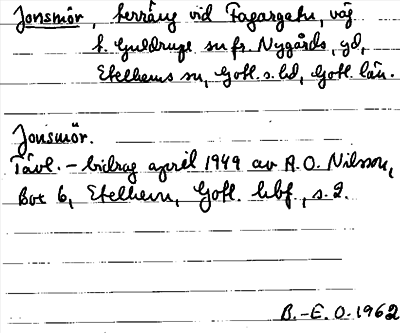 Jonsmör, terräng vid Fagargatu, väg
t. Guldrupe sn fr. Nygårds, gd,
Etelhems sn, Gotl. s. hd, Gotl. län.
Jonsmör.
Tävl.-bidrag april 1949 av A.O. Nilsson,
Box 6, Etelhem, Gotl. hbf., s. 2.
B.-E. O. 1962